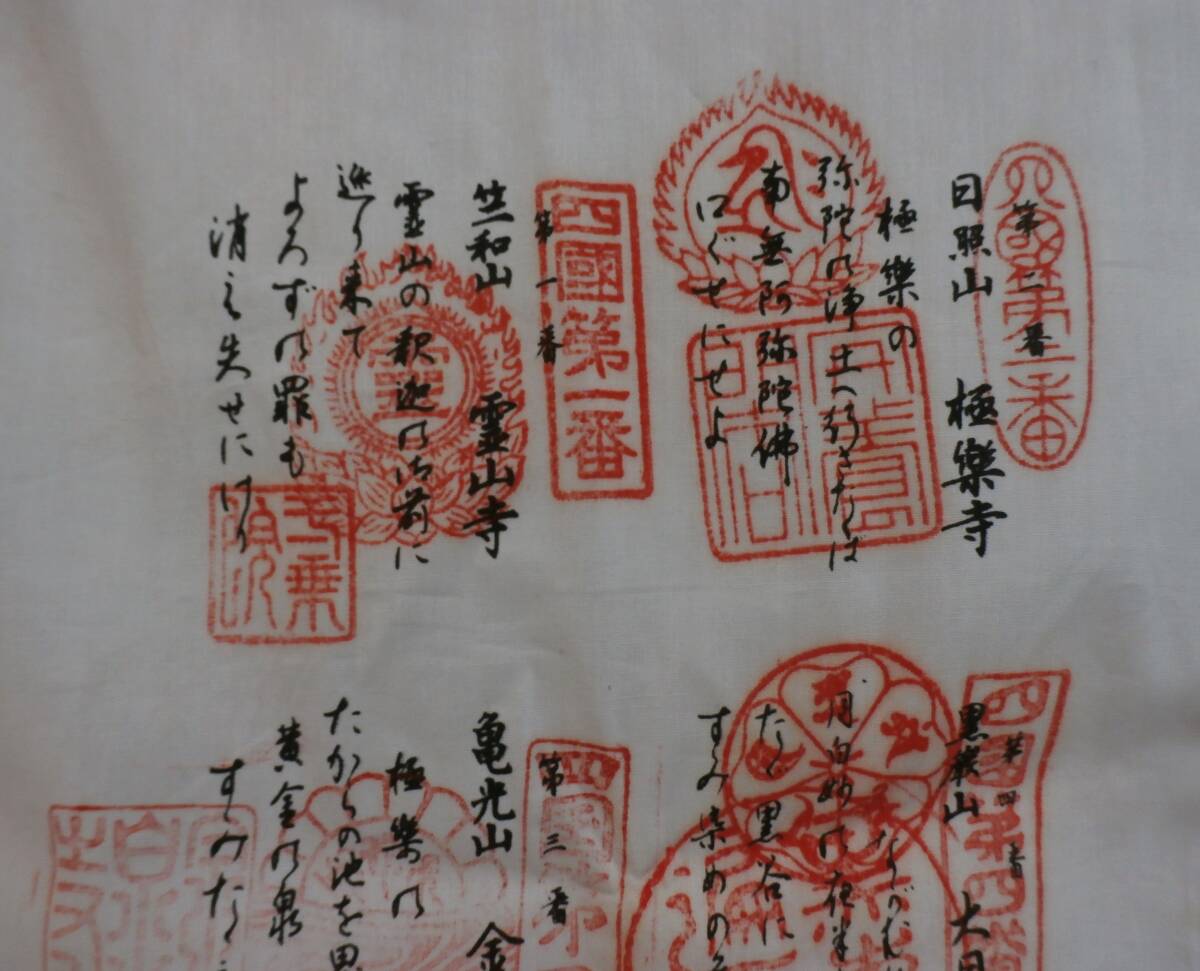 第一番
四國第一番
竺和山 靈山寺
霊山の釈迦の御前に
巡り来て
よろずの罪も
消え失せにけり
霊
第二番
日照山 極樂寺
極樂の
弥陀の浄土へ行きたくば
南無阿弥陀佛
口ぐせにせよ
第三番
亀光山 金
極樂の
たからの池を思
黄金の泉
すみたた
第四番
四國第四番
黒巌山 大日
ながむれ
月白妙の夜半
たゞ黒谷に
すみ染めの